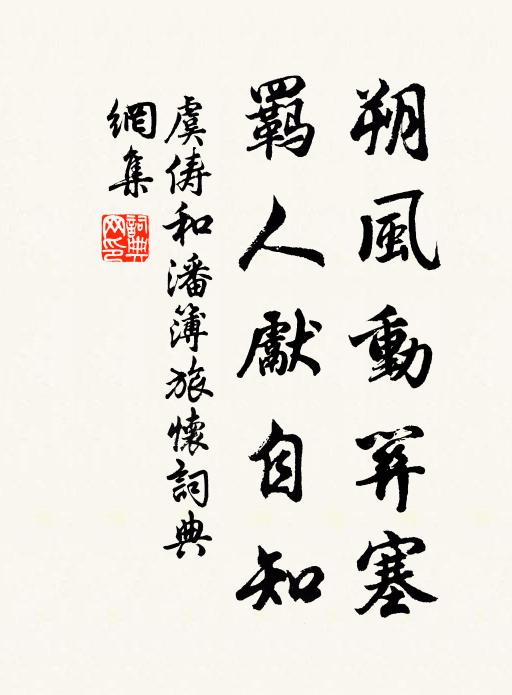 朔風動關塞
羈人獻自知
虞儔和潘簿旅懷詞典
網集
詞典
网印